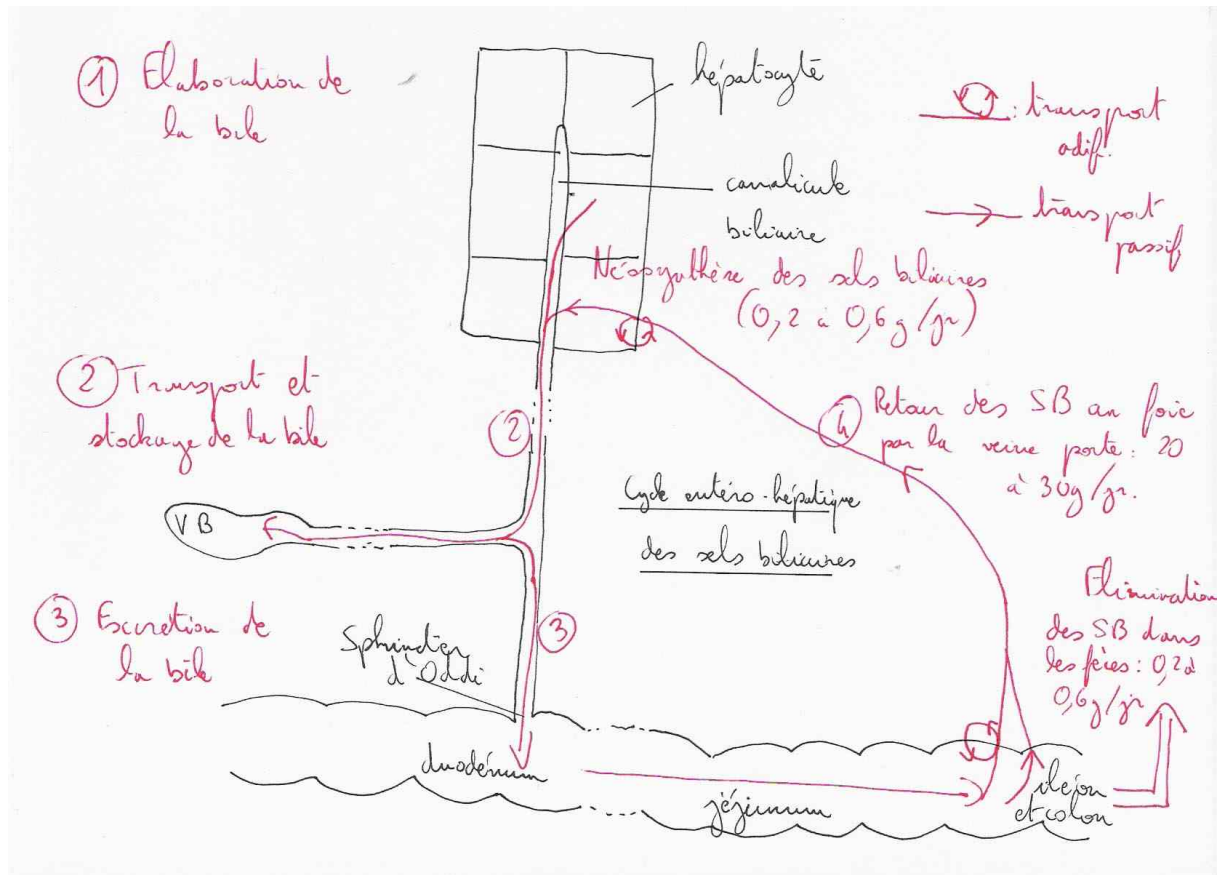 ① Elaboration de
la bile
hépatocyte
canalicule
biliaire
: transport
actif.
transport
passif
Néosynthèse des sels biliaires
(0,2 à 0,6g/jr)
② Transport et
stockage de la bile
②
④ Retour des SB au foie
par la veine porte : 20
à 30g/jr.
VB
Cycle entéro-hépatique
des sels biliaires
③ Excrétion de
la bile
Sphincter
d'Oddi
③
Elimination
des SB dans
les fèces : 0,2 à
0,6g/jr
duodénum
jéjunum
iléon
et colon